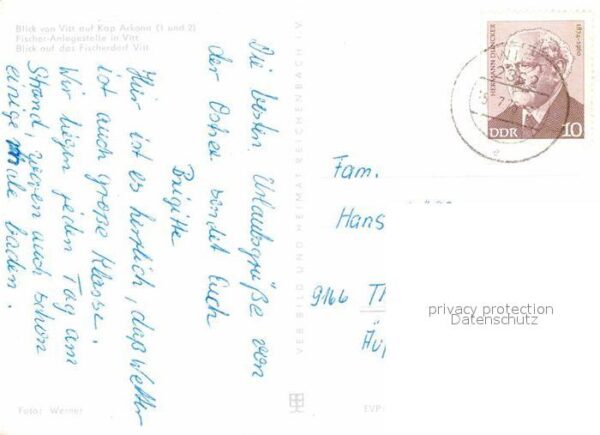 Blick von Vitt auf Kap Arkona (1 und 2)
Fischer-Anlegestelle in Vitt
Blick auf das Fischerdorf Vitt
Die besten Urlaubsgrüße von
der Ostsee sendet Euch
Brigitte
Hier ist es herrlich, das Wetter
ist auch große Klasse.
Wir liegen jeden Tag am
Strand, waren auch schon
einige Male baden.
Foto: Werner
VEB BILD UND HEIMAT REICHENBACH I. V.
HERMANN DUNCKER
1874-1960
DDR 10
Fam.
Hans
9166 Th
privacy protection
Datenschutz
EVP